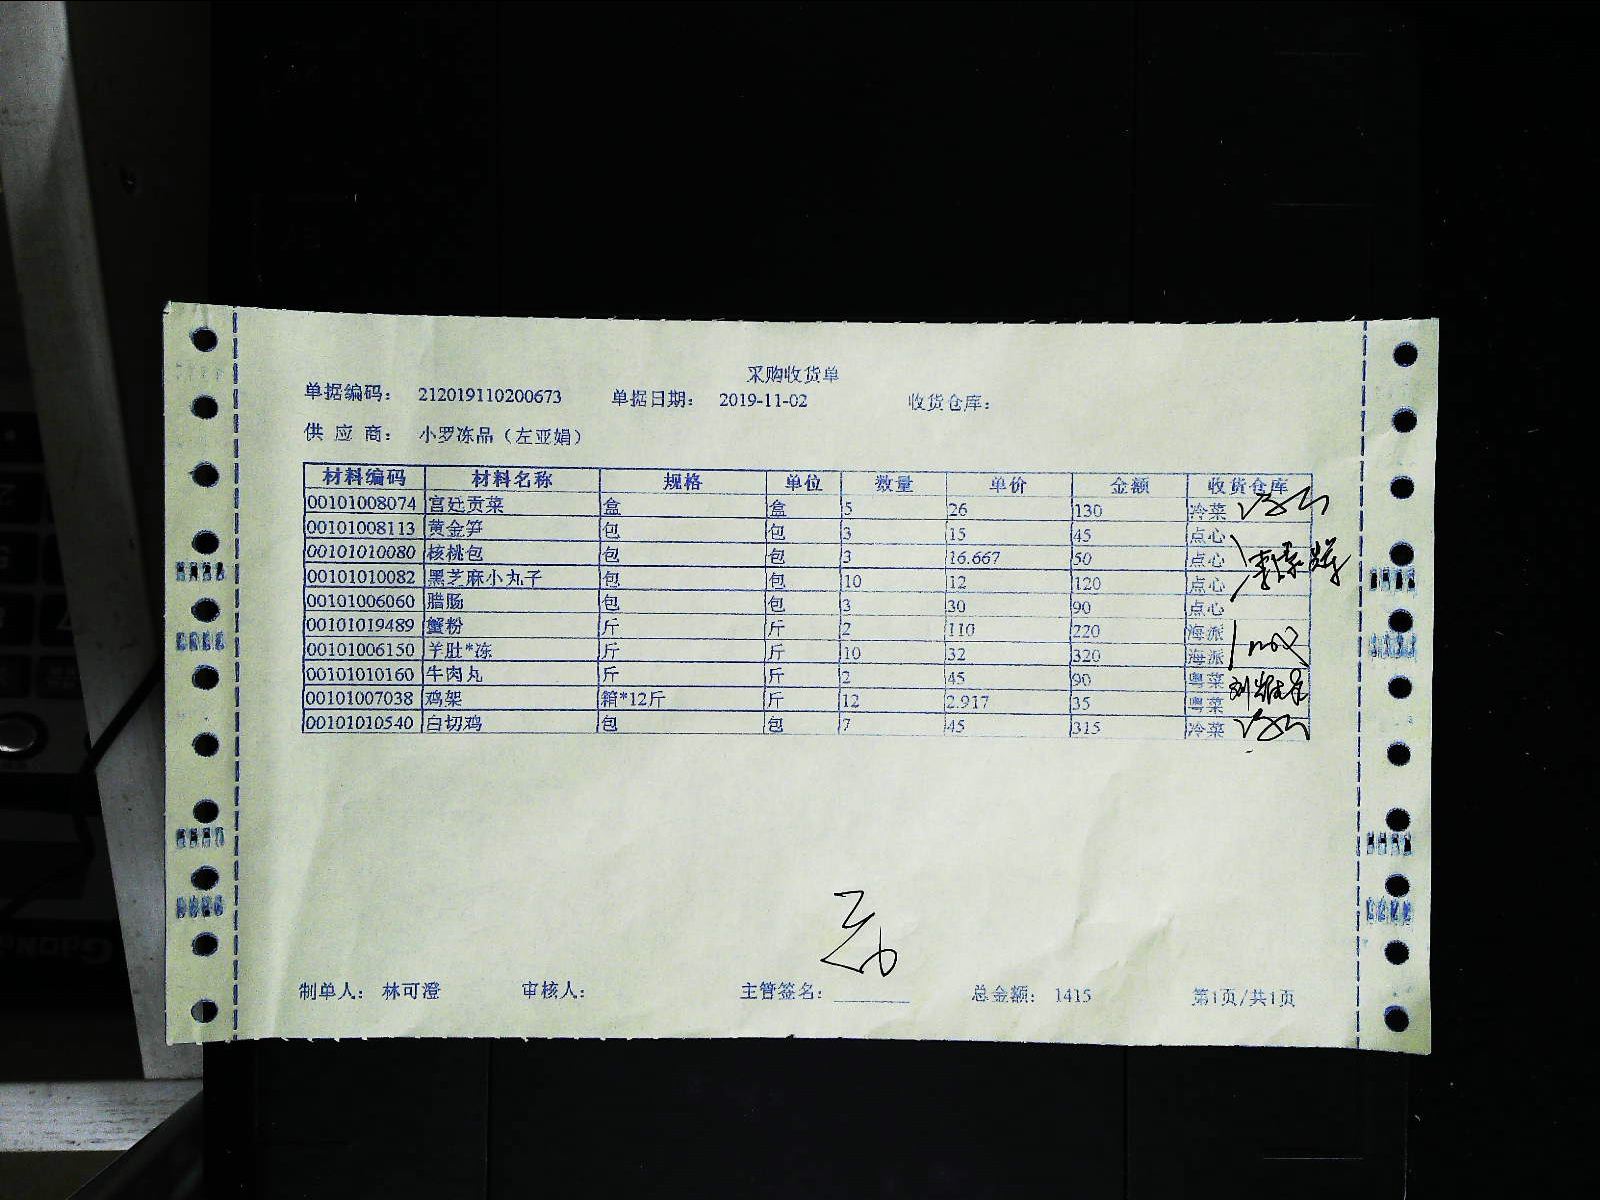 采购收货单
单据编码： 212019110200673 单据日期： 2019-11-02 收货仓库：
供 应 商： 小罗冻品（左亚娟）
材料编码 材料名称 规格 单位 数量 单价 金额 收货仓库
00101008074 宫廷贡菜 盒 盒 5 26 130 冷菜
00101008113 黄金笋 包 包 3 15 45 点心
00101010080 核桃包 包 包 3 16.667 50 点心
00101010082 黑芝麻小丸子 包 包 10 12 120 点心
00101006060 腊肠 包 包 3 30 90 点心
00101019489 蟹粉 斤 斤 2 110 220 海派
00101006150 羊肚*冻 斤 斤 10 32 320 海派
00101010160 牛肉丸 斤 斤 2 45 90 粤菜
00101007038 鸡架 箱*12斤 斤 12 2.917 35 粤菜
00101010540 白切鸡 包 包 7 45 315 冷菜
制单人： 林可澄 审核人： 主管签名： 总金额： 1415 第1页/共1页